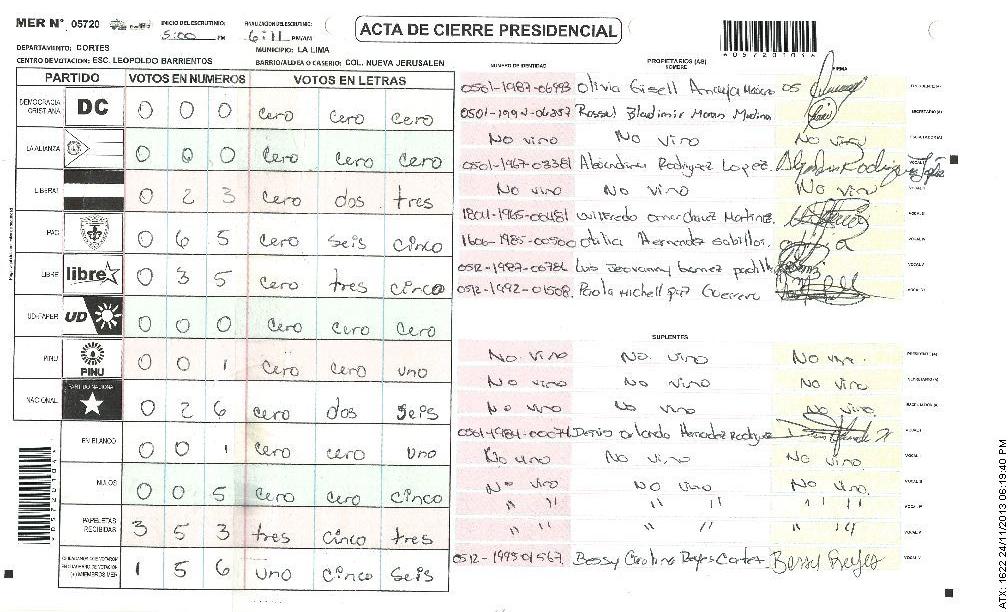 MER N° 05720
INICIO DEL ESCRUTINIO: 5:00 PM
FINALIZACION DEL ESCRUTINIO: 6:11 PM/AM
ACTA DE CIERRE PRESIDENCIAL
DEPARTAMENTO: CORTES
MUNICIPIO: LA LIMA
CENTRO DE VOTACION: ESC. LEOPOLDO BARRIENTOS
BARRIO/ALDEA O CASERIO: COL. NUEVA JERUSALEN
PARTIDO VOTOS EN NUMEROS VOTOS EN LETRAS
DEMOCRACIA CRISTIANA DC 0 0 0 cero cero cero
LA ALIANZA 0 0 0 cero cero cero
LIBERAL 0 2 3 cero dos tres
PAC 0 6 5 cero seis cinco
LIBRE libre 0 3 5 cero tres cinco
UD-FAPER UD 0 0 0 cero cero cero
PINU PINU 0 0 1 cero cero uno
NACIONAL PARTIDO NACIONAL 0 2 6 cero dos seis
EN BLANCO 0 0 1 cero cero uno
NULOS 0 0 5 cero cero cinco
PAPELETAS RECIBIDAS 3 5 3 tres cinco tres
(+) MIEMBROS MER 1 5 6 uno cinco seis
NUMERO DE IDENTIDAD
PROPIETARIOS (AS)
NOMBRE
FIRMA
0501-1987-06993 Olivia Gisell Anaya
No vino No vino No vino
0501-1967-03381 Alexandrina Rodriguez Lopez
No vino No vino No vino
1801-1965-00481 Wilfredo omar chavez Martinez
1606-1985-00500 Otilia Hernandez sabillon
0512-1987-00786 Luis Jeovanny
0512-1992-01508 Paola Michell paz Guerrero
SUPLENTES
No vino No vino No vino
No vino No vino No vino
No vino No vino No vino
Orlando Hernadez Rodriguez
No vino No vino No vino
No vino No vino No vino
" " " " " "
" " " " " "
0512-1995-01567 Bessy Carolina Reyes Cortez Bessy Reyes
ATX: 1622 24/11/2013 06:19:40 PM